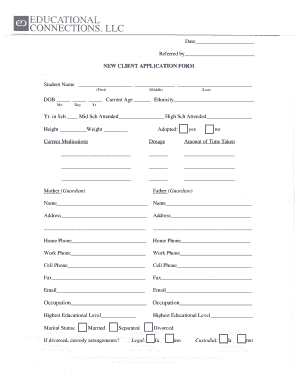 EDUCATIONAL
CONNECTIONS, LLC
Date
Referred by
NEW CLIENT APPLICATION FORM
Student Name
(First) (Middle) (Last)
DOB Current Age Ethnicity
Mo Day Yr
Yr. in Sch Mid Sch Attended High Sch Attended
Height Weight Adopted: yes no
Current Medications Dosage Amount of Time Taken
Mother (Guardian) Father (Guardian)
Name Name
Address Address
Home Phone Home Phone
Work Phone Work Phone
Cell Phone Cell Phone
Fax Fax
Email Email
Occupation Occupation
Highest Educational Level Highest Educational Level
Marital Status: Married Separated Divorced
If divorced, custody arrangements? Legal: no Custodial: no